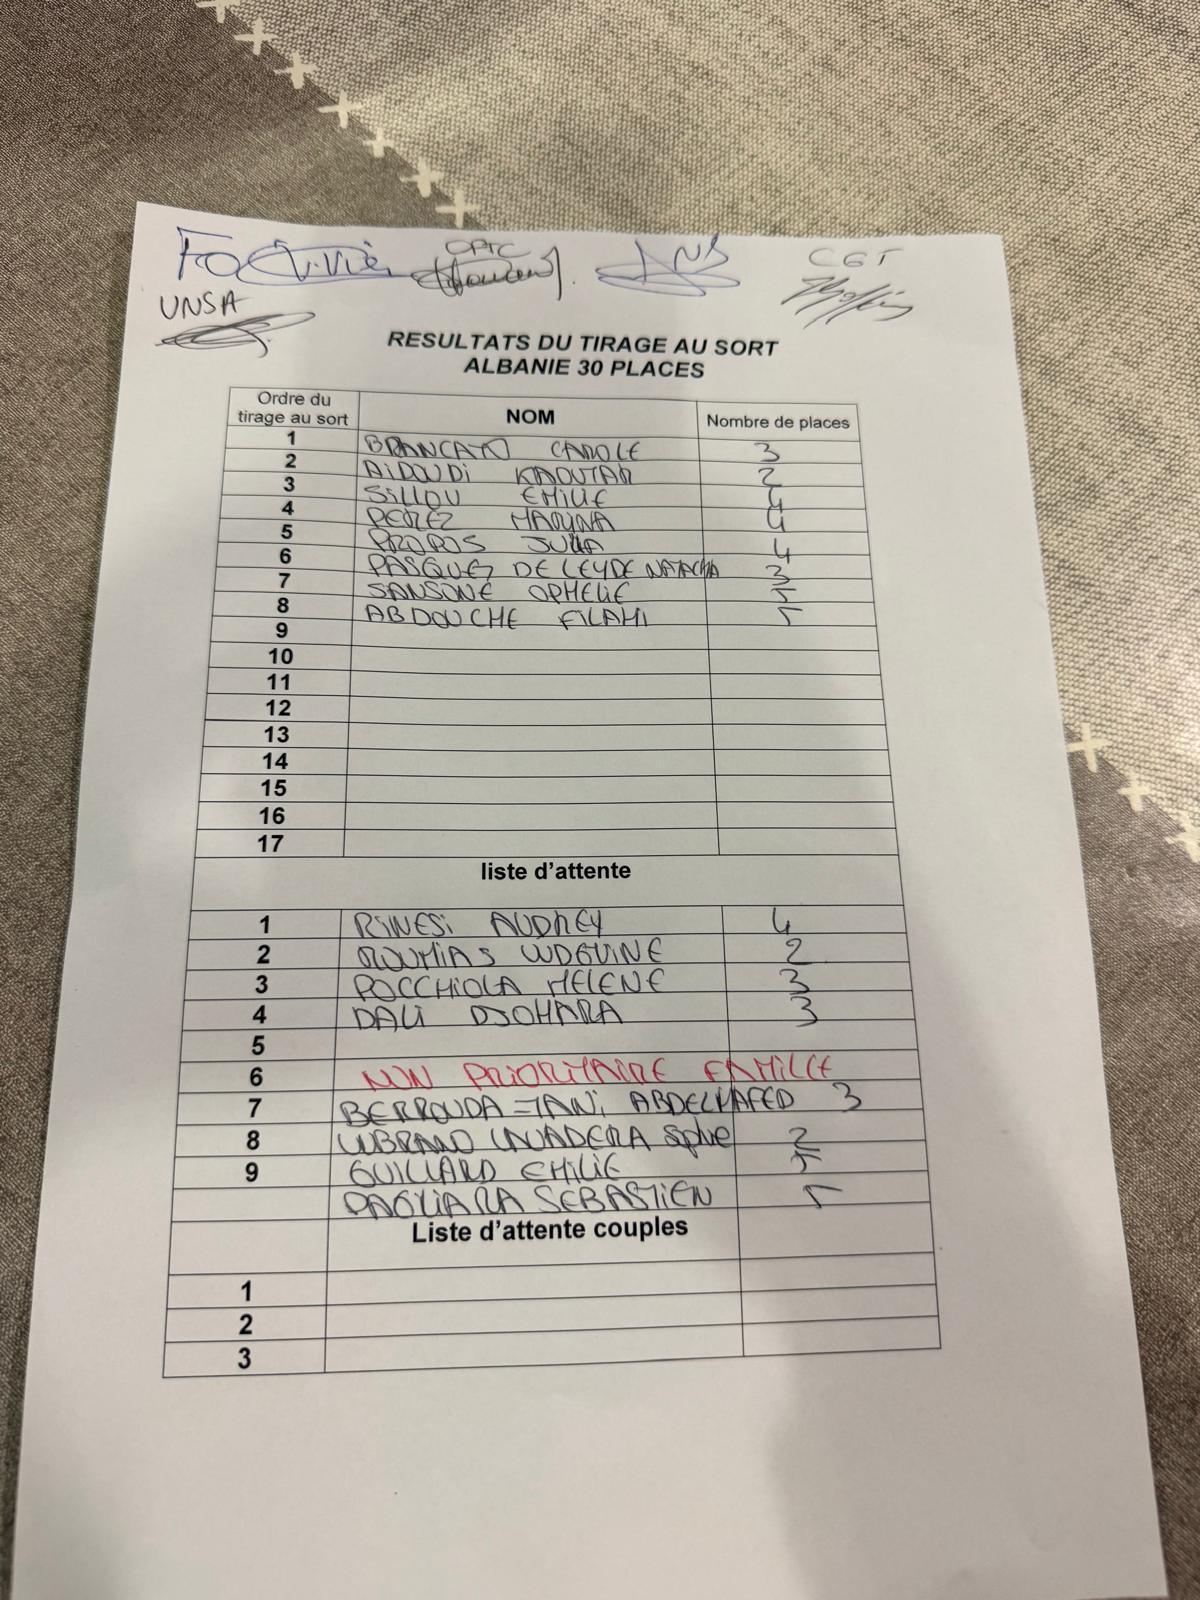 FO CFTC CGT
UNSA
RESULTATS DU TIRAGE AU SORT
ALBANIE 30 PLACES
Ordre du tirage au sort NOM Nombre de places
1 BRANCATO CAROLE 3
2 AIDOUDI KAOUTAR 2
3 SILLOU EMILIE 4
4 PEREZ MARINA 4
5 PROPOS JULIA 4
6 PASQUEZ DE LEYDE NATACHA 3
7 SANSONE OPHELIE 5
8 ABDOUCHE FILAMI 5
9
10
11
12
13
14
15
16
17
liste d'attente
1 RINESI AUDREY 4
2 ROUMIAS LUDGVINE 2
3 POCCHIOLA HELENE 3
4 DALI DJOHARA 3
5
6 NON PRIORITAIRE FAMILLE
7 BERROUDA-TANI ABDELHAFED 3
8 LUBRANO LAVADERA 2
9 GUILLARD EMILIE 5
PAGLIARA SEBASTIEN 5
Liste d'attente couples
1
2
3